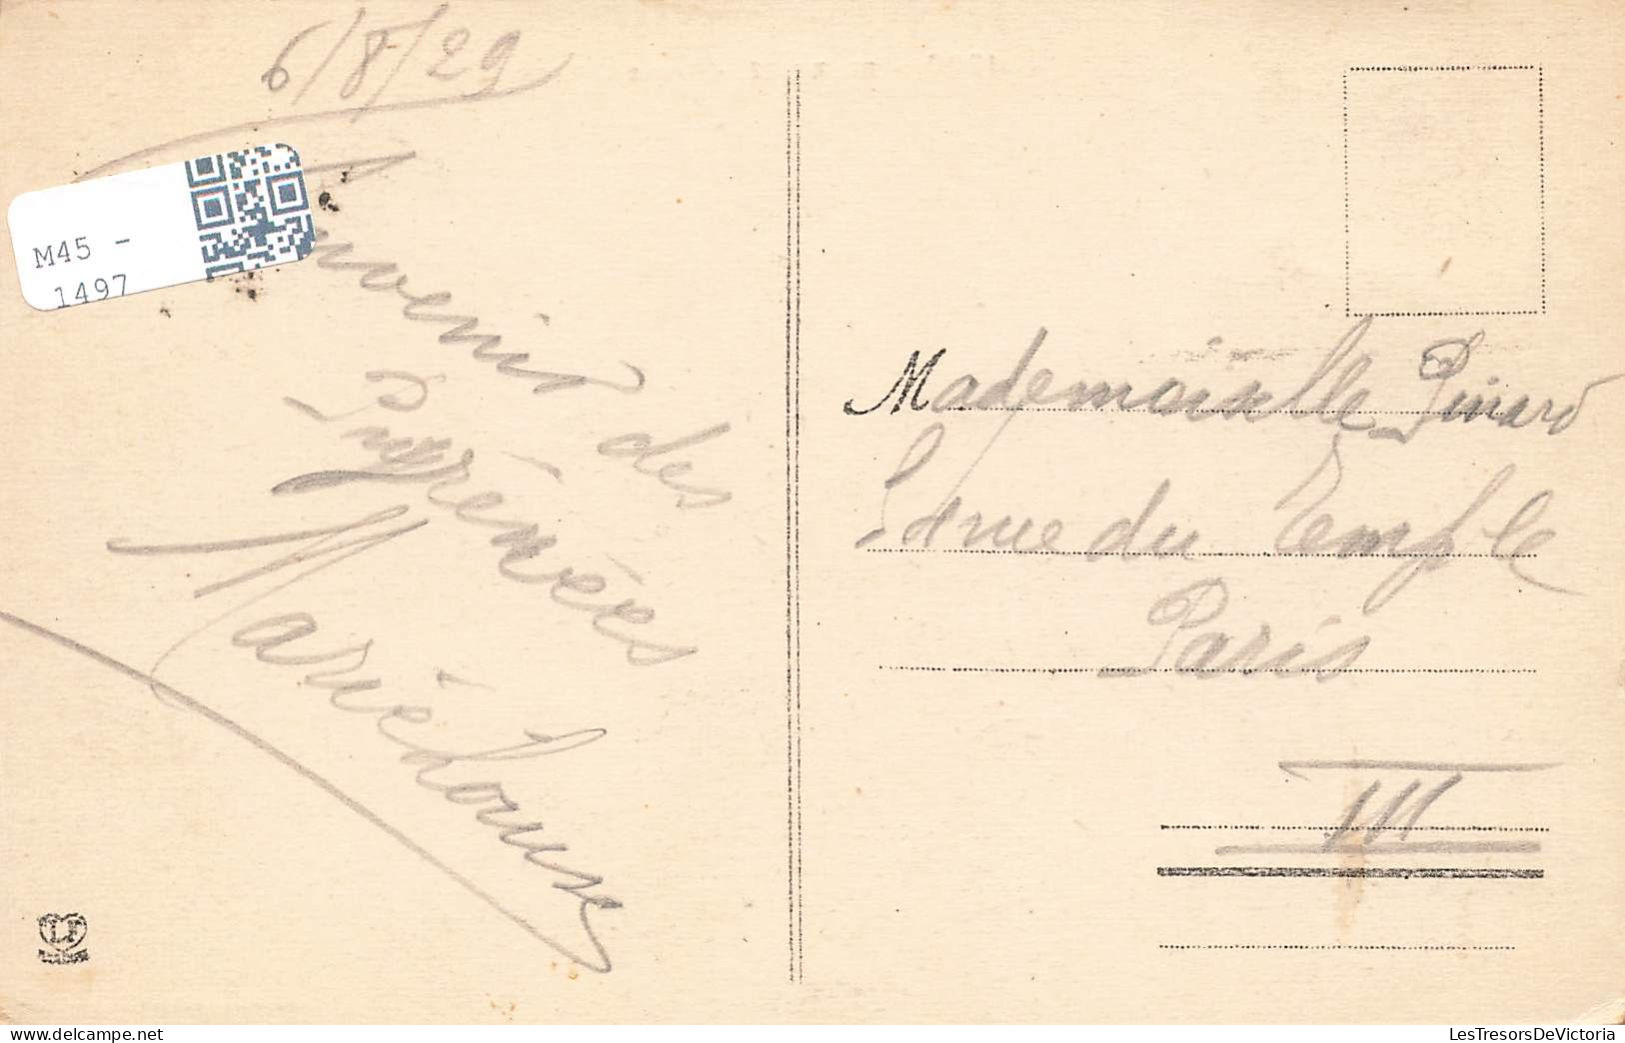 6/8/29
Souvenir des
Pyrénées
Marie Louise
M45 -
1497
Mademoiselle Pinard
rue du Temple
Paris
III
LesTresorsDeVictoria
delcampe.net